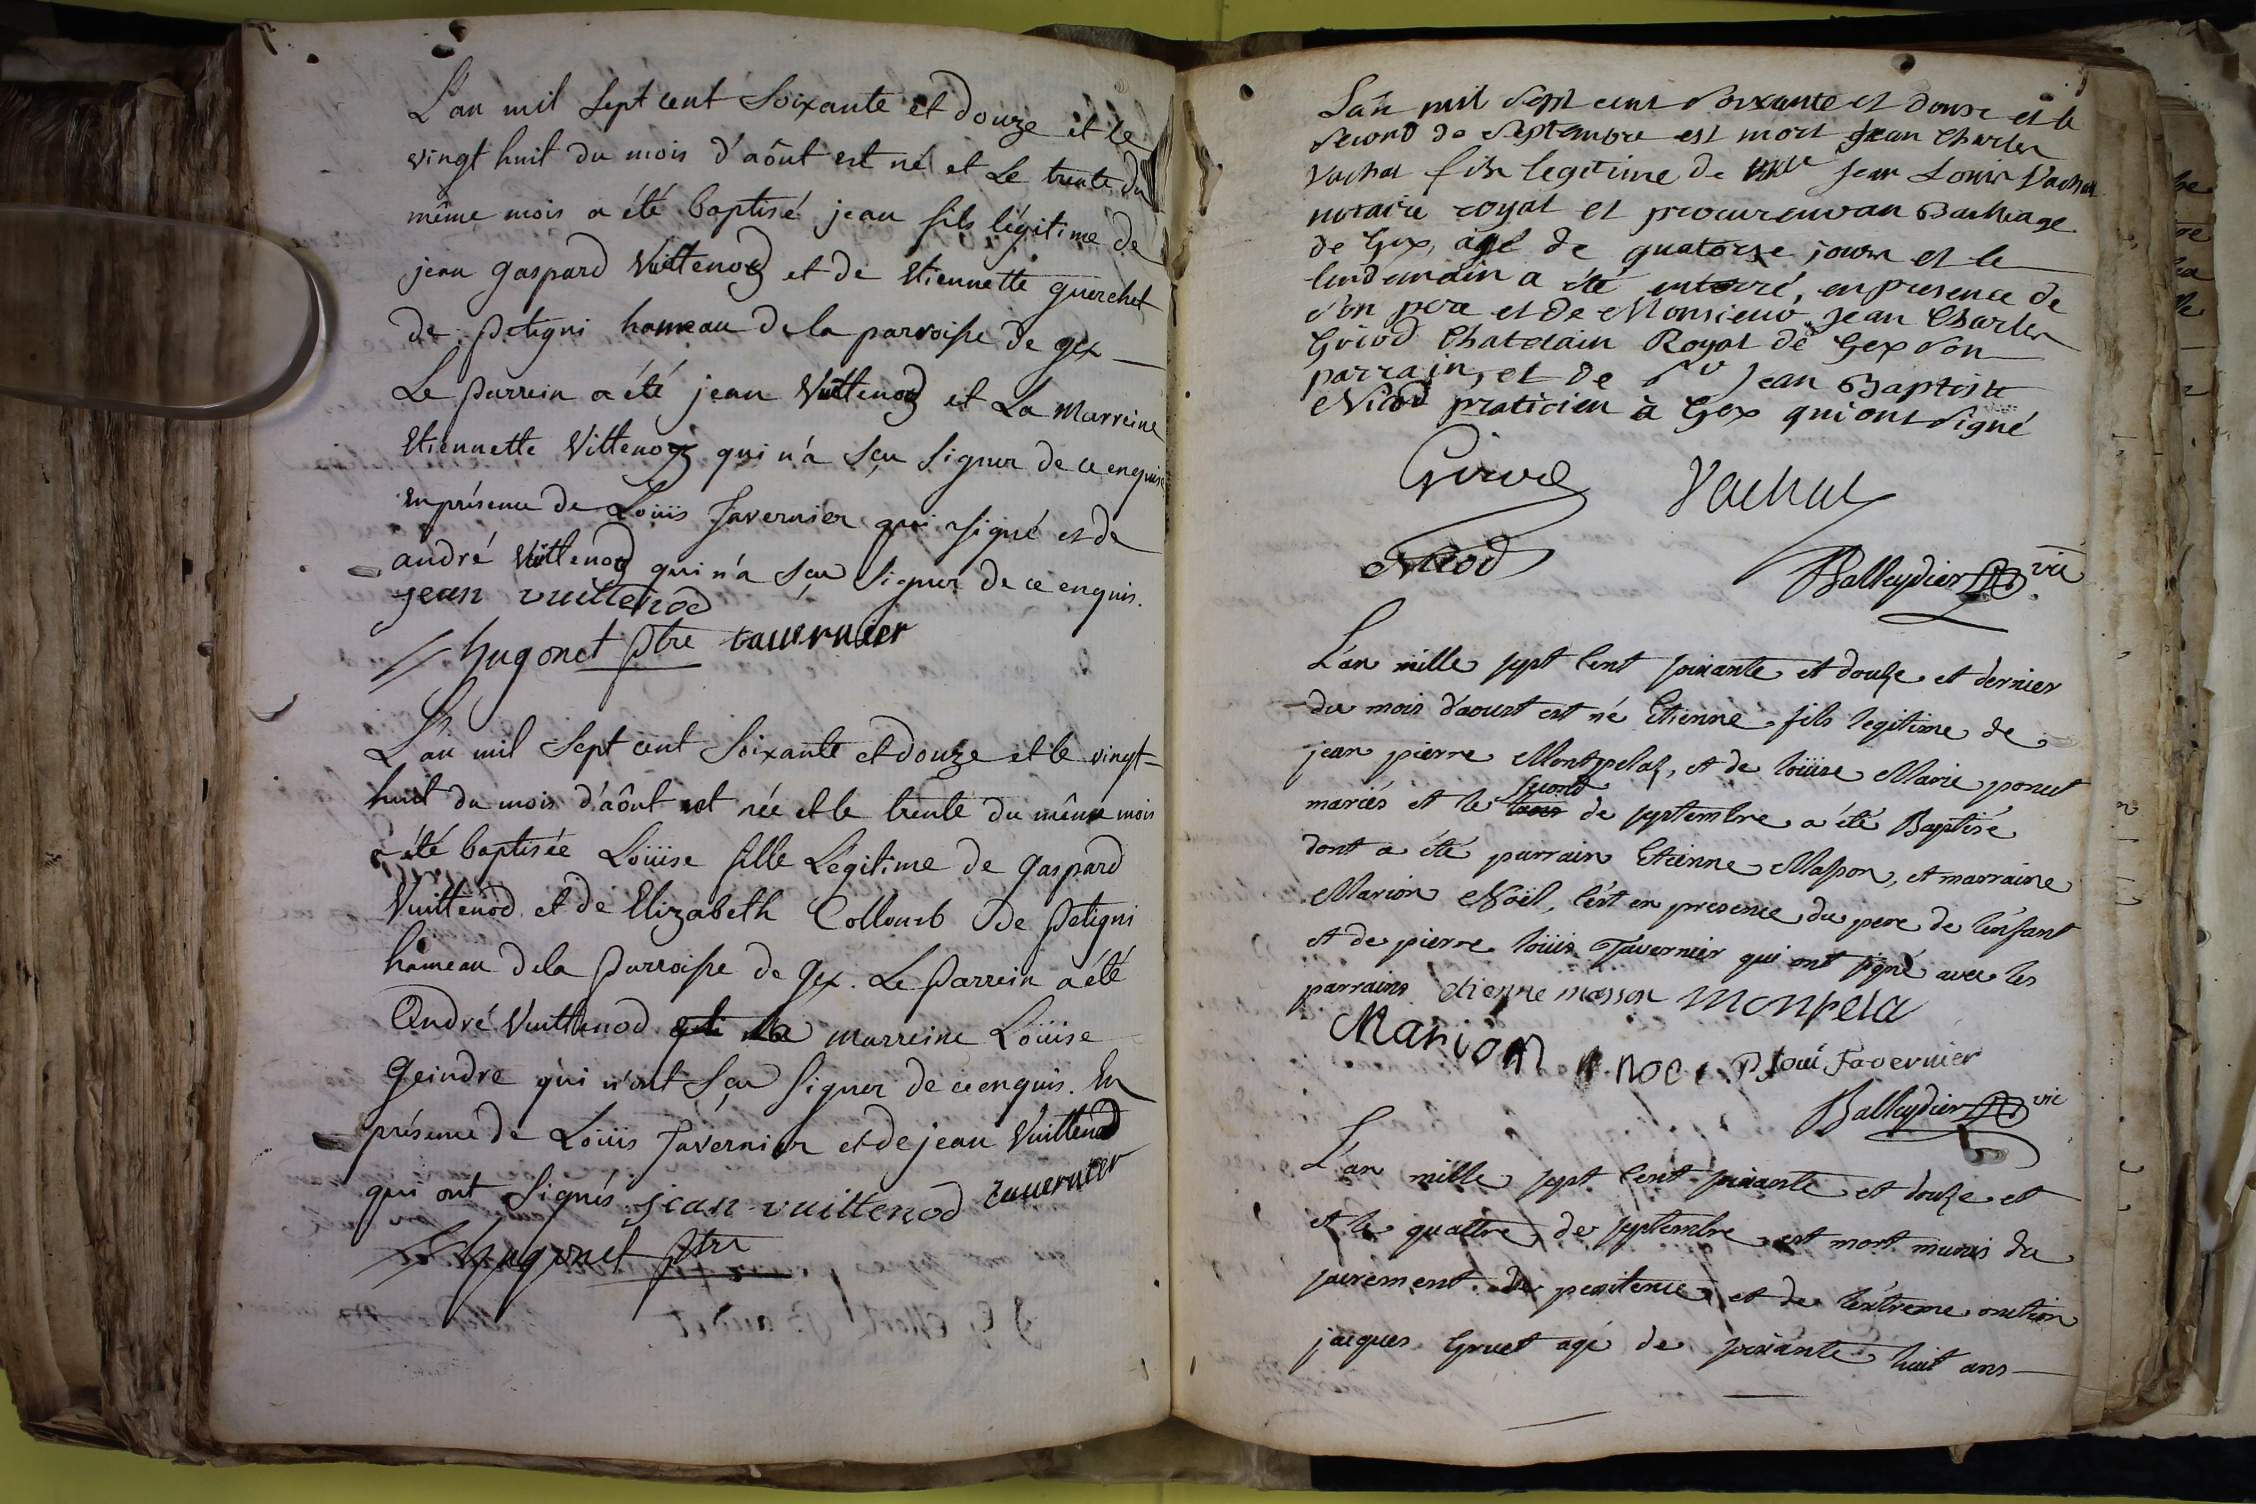 L'an mil sept cent soixante et douze et le
vingt huit du mois d'aôut est né et Le trente du
même mois a été baptisé jean fils légitime de
jean gaspard Vuittenod et de Etiennette querchet
de petigni hameau dela parroisse de gex
Le parrein a été jean Vuittenod et La marreine
Etiennette Vittenod qui n'a sçu signer de ce enquise
en présence de Loüis Tavernier qui signé et de
andré Vuittenod qui n'a sçu signer de ce enquis.
jean vuittenod
hugonet ptre tavernier
L'an mil sept cent soixante et douze et le vingt=
huit du mois d'aôut est née et le trente du même mois
a été baptisée Loüise fille Légitime de gaspard
Vuittenod et de Elizabeth Collomb De petigni
hameau dela parroisse de gex. Le parrein a été
André Vuittenod et la marreine Loüise
Geindre qui n'ont sçu signer de ce enquis. En
présence de Loüis Tavernier et de jean Vuittenod
qui ont signés jean vuittenod tavernier
hugonet ptre
L'an mil sept cent soixante et douse et le
second de septembre est mort Jean Charles
Vachat fils legitime de Jean Louis Vachat
notaire royal et procureur au Bailliage
de Gex, agé de quatorse jours et le
lendemain a été enterré, en presence de
son pere et de Monsieur Jean Charles
Girod Chatelain Royal de Gex son
parrain, et de Sr Jean Baptiste
Nicod praticien à Gex qui ont signé
Girod Vachat
Nicod Balleydier vic
L'an mille sept cent soixante et douze et dernier
du mois d'aoust est né Etienne fils legitime de
jean pierre Montpelaz, et de loüise Marie poncet
mariés et le second de septembre a été Baptisé
dont a été parrain Etienne Masson, et marraine
Marion Noël, c'est en presence du pere de l'enfant
et de pierre loüis Tavernier qui ont signé avec les
parrains. etienne masson monpela
Marion noel P loui Tavernier
Balleydier vic
L'an mille sept cent soixante et douze et
et le quattre de septembre est mort munis du
sacrement de penitence et de l'extreme onction
jacques Gruet agé de soixante huit ans